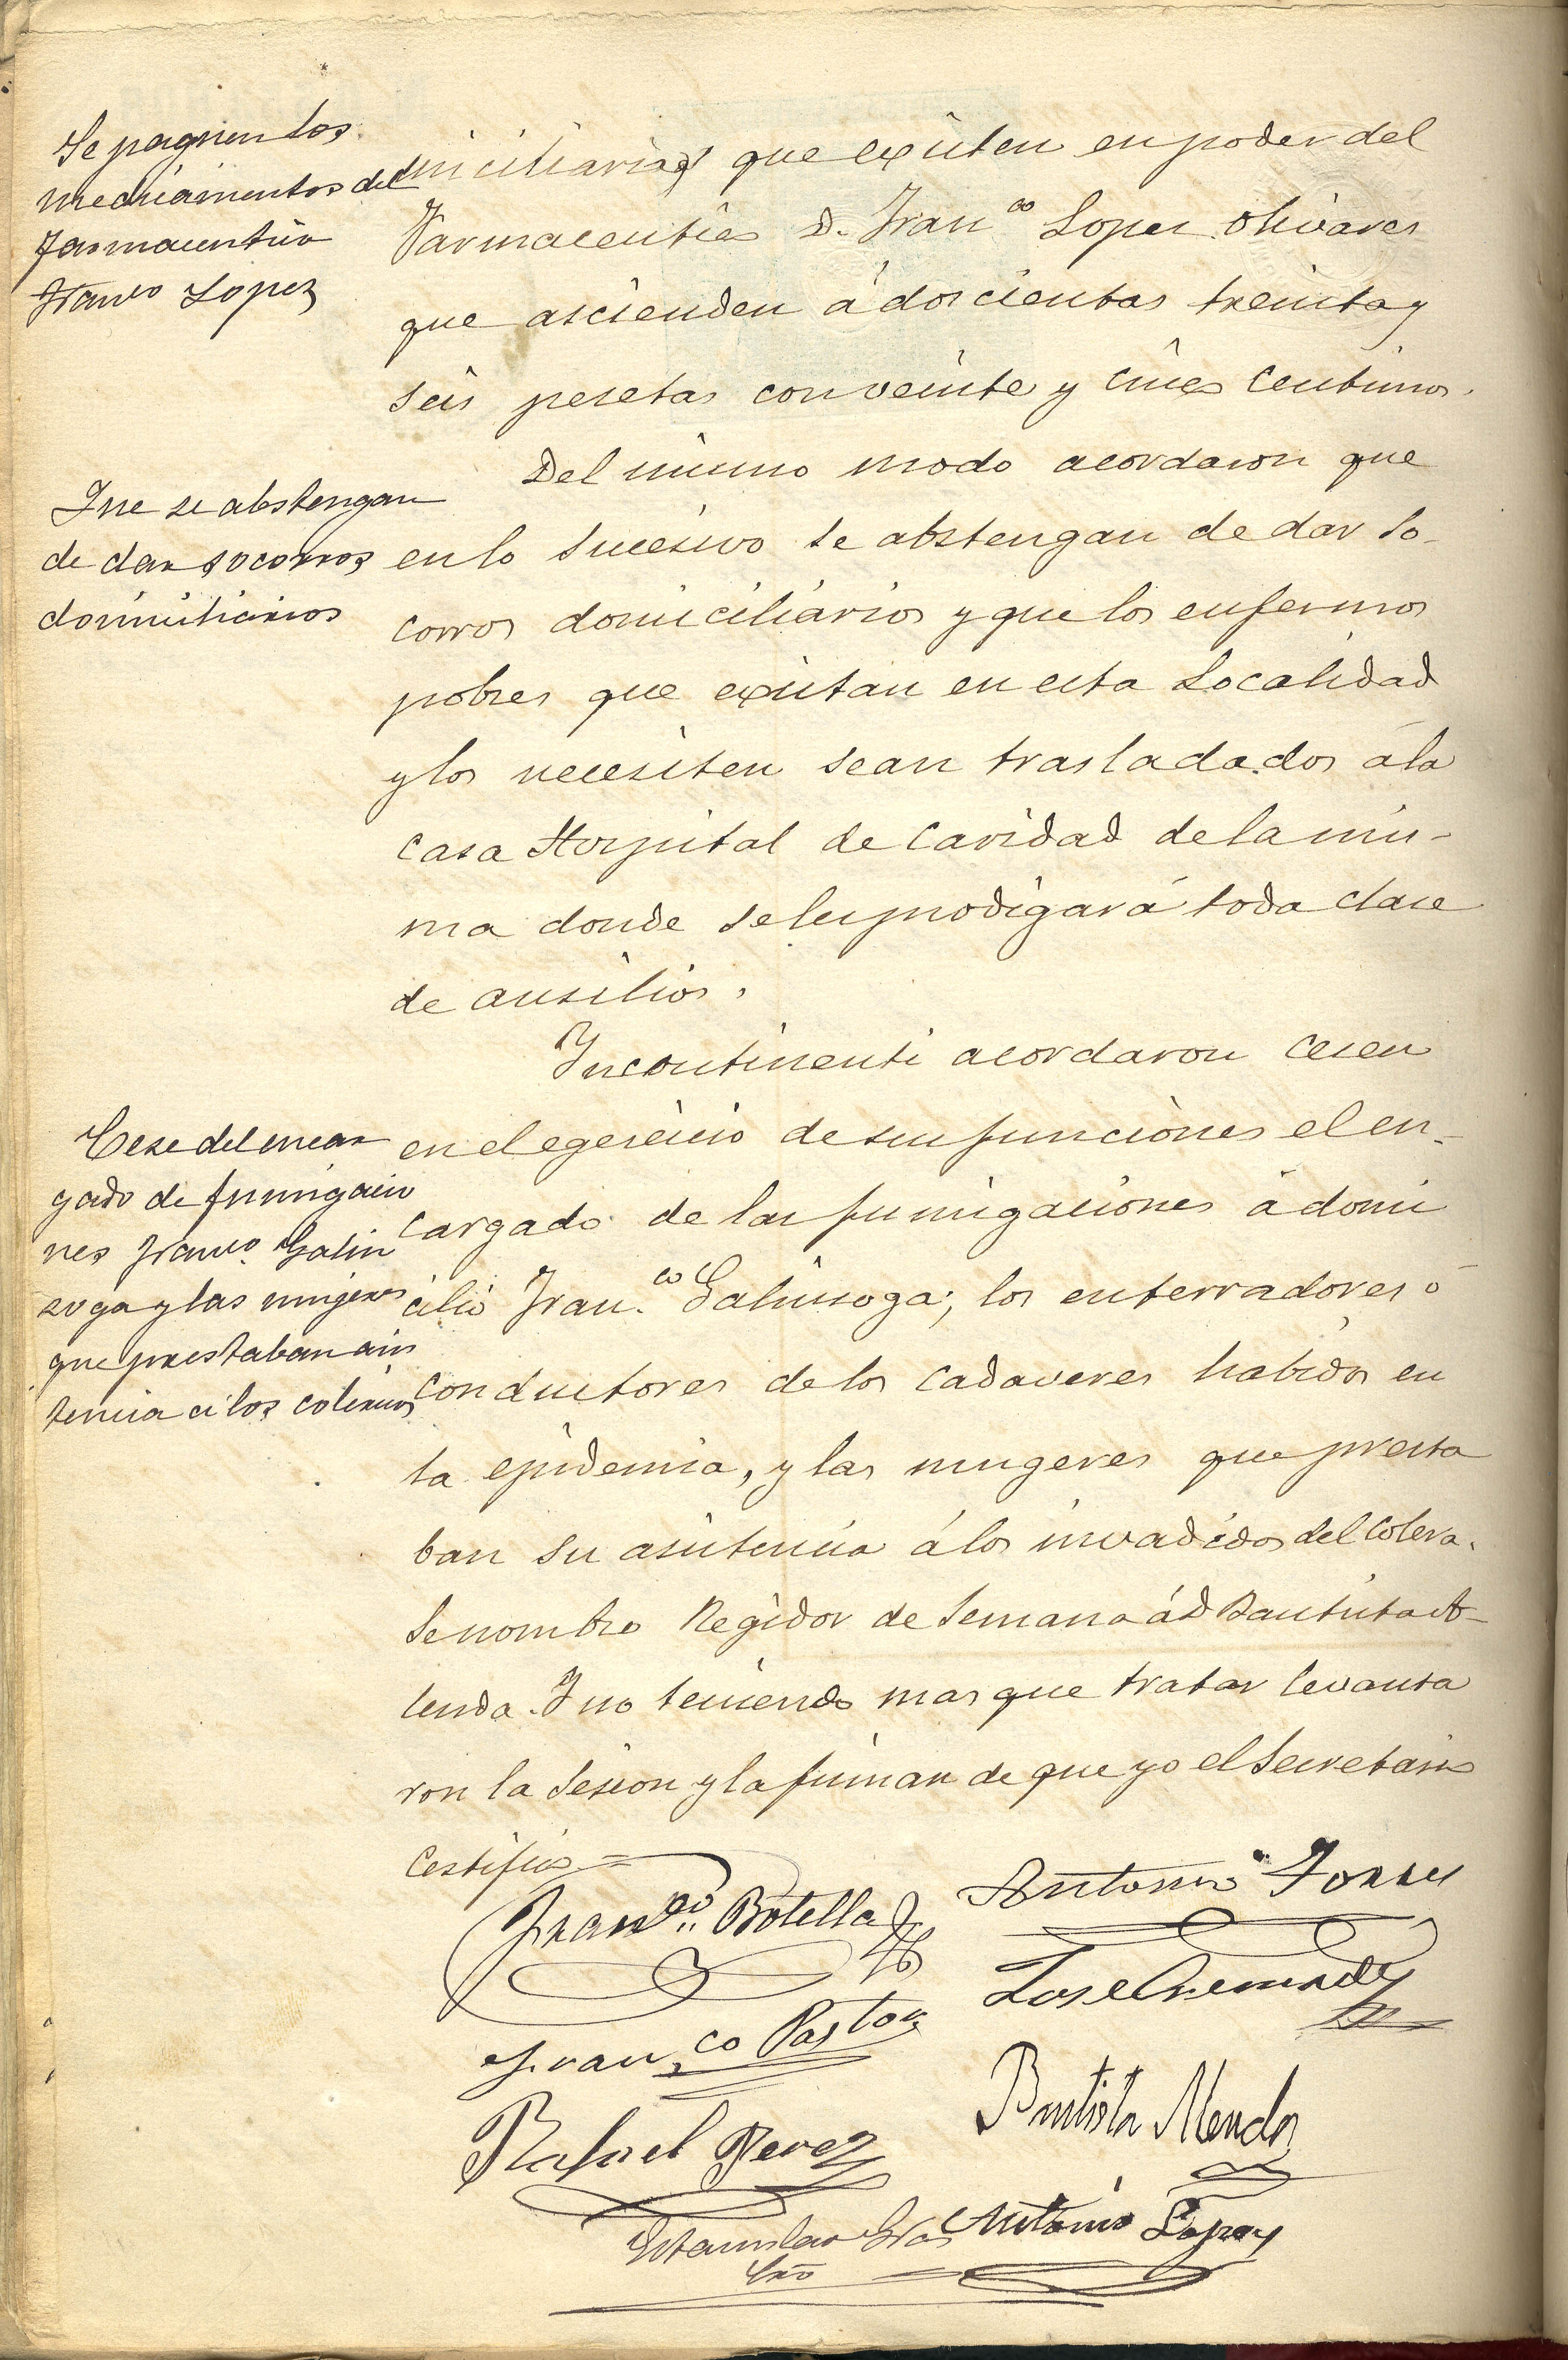 Se paguen los
medicamentos del
farmaceutico
Franco Lopez
miciliarias que existen en poder del
Farmaceutico D. Fran.co Lopez Olivares
que ascienden á doscientas treinta y
seis pesetas con veinte y cinco centimos.
Que se abstengan
de dar socorros
domiciliarios
Del mismo modo acordaron que
en lo sucesivo se abstengan de dar so-
corros domiciliarios y que los enfermos
pobres que existan en esta Localidad
y los necesiten sean trasladados á la
Casa Hospital de Caridad de la mis-
ma donde se les prodigará toda clase
de ausilios.
Cese del encar
gado de fumigacio
nes Franco. Galin
zoga y las mujeres
que prestaban asis
tencia á los colericos
Incontinenti acordaron cesen
en el egercicio de sus funciones el en-
cargado de las fumigaciones á domi
cilio Fran.co Galinsoga; los enterradores ó
conductores de los cadaveres habidos en
la epidemia, y las mugeres que presta
ban su asistencia á los invadidos del colera.
Se nombro Regidor de Semana á D Bautista
lenda. Y no teniendo mas que tratar levanta
ron la Sesion y la firman de que yo el Secretario
Certifico =
Franco. Botella
Antonio Torres
Jose Cremades
Fran.co Pastor
Bautista
Rafael Perez
Antonio Lopez
Estanislao
Srio